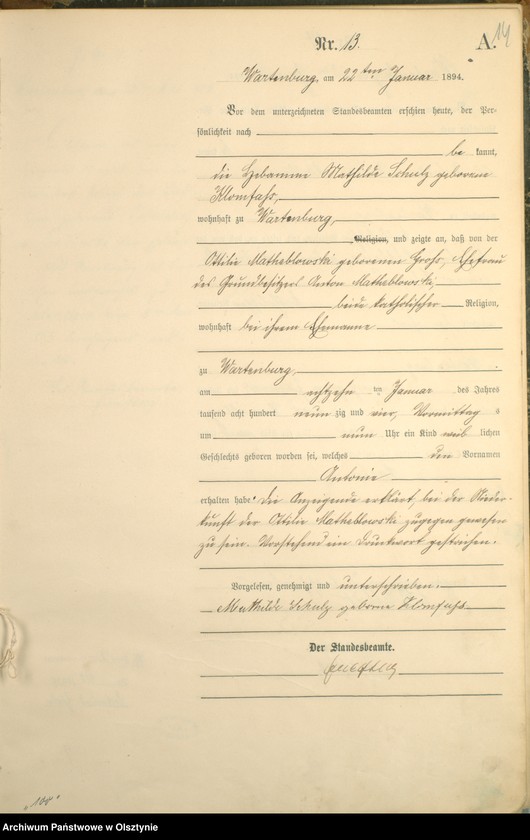 14
Nr. 13.
A.
Wartenburg, am 22 ten Januar 1894.
Vor dem unterzeichneten Standesbeamten erschien heute, der Per-
sönlichkeit nach
be kannt,
die Hebamme Mathilde Schulz geborene
Klomfass,
wohnhaft zu Wartenburg,
Religion, und zeigte an, daß von der
Ottilie Matheblowski geborenen Gross, Ehefrau
des Grundbesitzers Anton Matheblowski,
beide katholischer Religion,
wohnhaft bei ihrem Ehemanne
zu Wartenburg,
am achtzehn ten Januar des Jahres
tausend acht hundert neun zig und vier, Vormittag s
um neun Uhr ein Kind weib lichen
Geschlechts geboren worden sei, welches den Vornamen
Antonie
erhalten habe. Die Anzeigende erklärt, bei der Nieder-
kunft der Ottilie Matheblowski zugegen gewesen
zu sein. Vorstehend ein Druckwort gestrichen.
Vorgelesen, genehmigt und unterschrieben.
Mathilde Schulz geborne Klomfass
Der Standesbeamte.
"100"
Archiwum Państwowe w Olsztynie